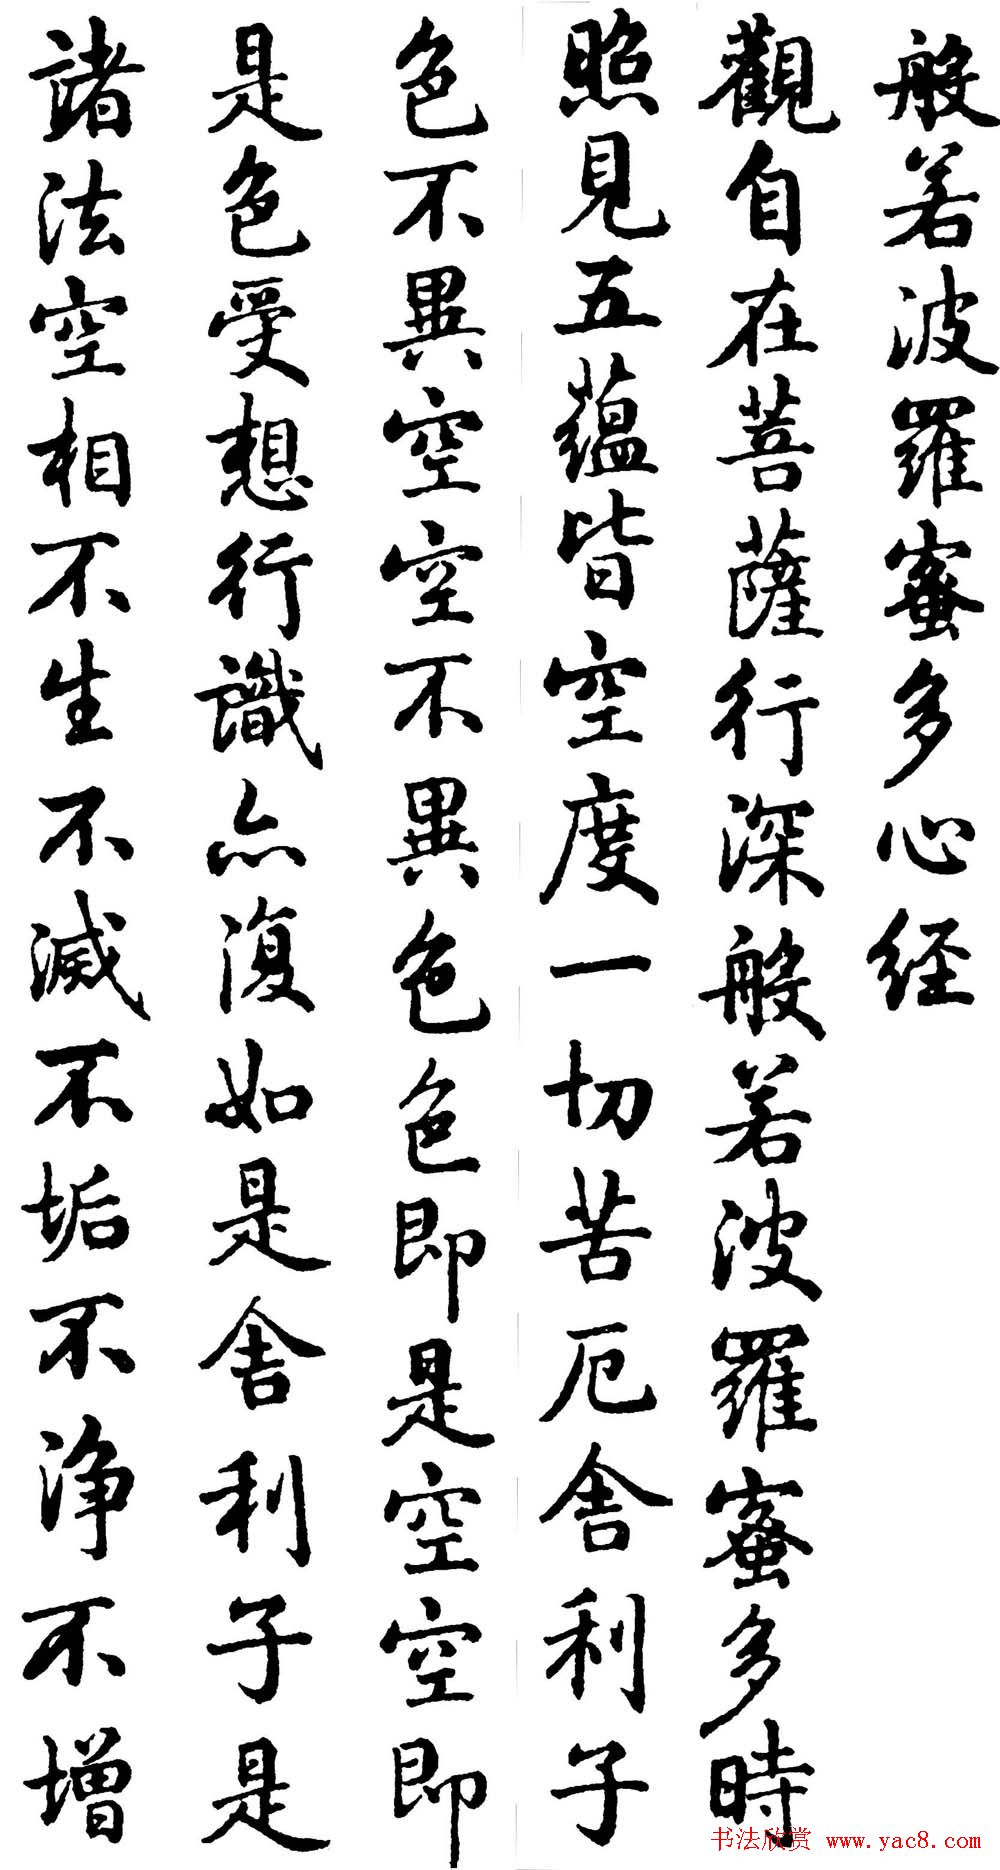 般若波羅蜜多心经
觀自在菩薩行深般若波羅蜜多時
照見五蘊皆空度一切苦厄舍利子
色不異空空不異色色即是空空即
是色受想行識亦復如是舍利子是
諸法空相不生不滅不垢不浄不增
书法欣赏 www.yac8.com